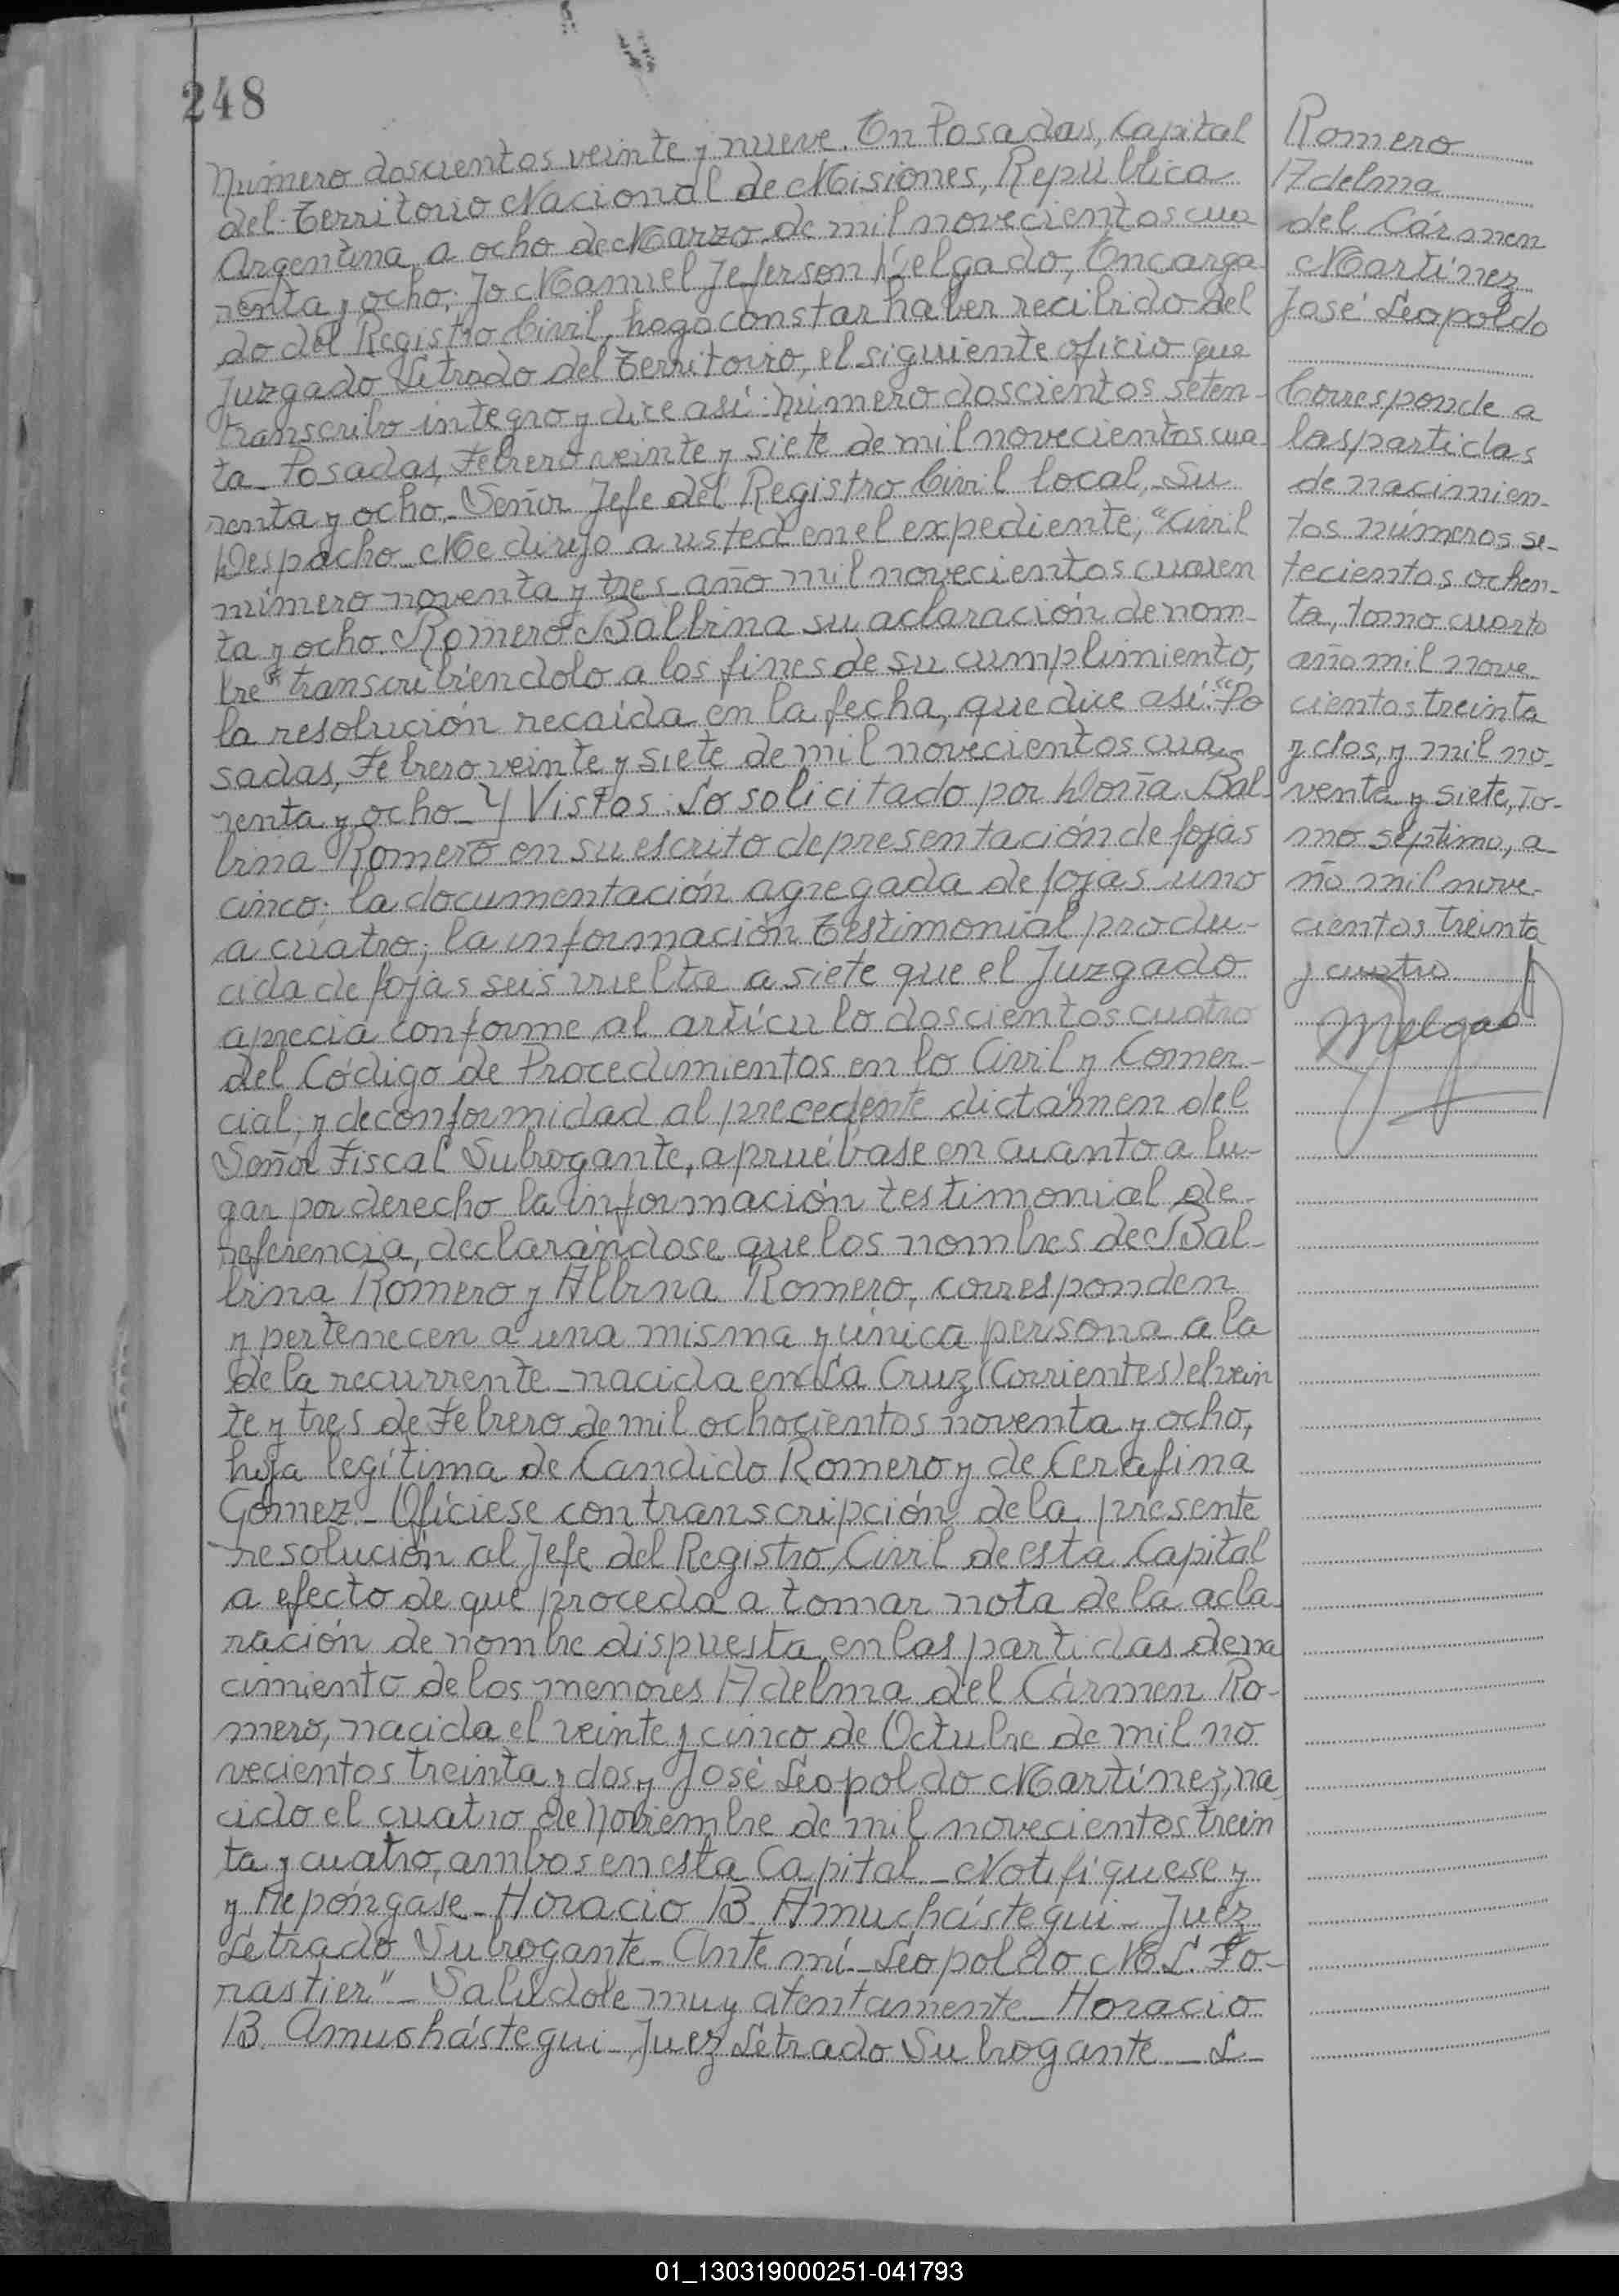 248
Número doscientos veinte y nueve. En Posadas, Capital
del Territorio Nacional de Misiones, República
Argentina, a ocho de Marzo de mil novecientos cua
renta y ocho; Yo Manuel Jeferson Delgado, Encarga
do del Registro Civil, hago constar haber recibido del
Juzgado Letrado del Territorio, el siguiente oficio que
transcribo integro y dice así: Número doscientos seten-
ta_ Posadas, Febrero veinte y siete de mil novecientos cua-
renta y ocho_ Señor Jefe del Registro Civil local_ Su
Despacho_ Me dirijo a usted en el expediente; "Civil
número noventa y tres_ año mil novecientos cuaren
ta y ocho. Romero Balbina su aclaración de nom-
bre" transcribiéndolo a los fines de su cumplimiento,
la resolución recaída en la fecha, que dice así: "Po
sadas, Febrero veinte y siete de mil novecientos cua-
renta y ocho_ Y Vistos: Lo solicitado por Doña Bal-
bina Romero en su escrito de presentación de fojas
cinco; la documentación agregada de fojas uno
a cuatro; la información testimonial produ-
cida de fojas seis vuelta a siete que el Juzgado
aprecia conforme al artículo doscientos cuatro
del Código de Procedimientos en lo Civil y Comer-
cial; y de conformidad al precedente dictámen del
Señor Fiscal Subrogante, apruébase en cuanto a lu-
gar por derecho la información testimonial de
referencia, declarándose que los nombres de Bal-
bina Romero y Albina Romero, corresponden
y pertenecen a una misma y única persona a la
de la recurrente_ nacida en La Cruz (Corrientes) el vein
te y tres de Febrero de mil ochocientos noventa y ocho,
hija legítima de Candido Romero y de Cerafina
Gómez_ Ofíciese con transcripción de la presente
resolución al Jefe del Registro Civil de esta Capital
a efecto de que proceda a tomar nota de la acla-
ración de nombre dispuesta en las partidas de na
cimiento de los menores Adelma del Cármen Ro-
mero, nacida el veinte y cinco de Octubre de mil no
vecientos treinta y dos y José Leopoldo Martínez, na
cido el cuatro de Noviembre de mil novecientos trein
ta y cuatro, ambos en esta Capital_ Notifíquese y
y Repóngase_ Horacio B. Amuchástegui_ Juez
Letrado Subrogante_ Ante mí_ Leopoldo M. L. Fo-
rastier"_ Salúdole muy atentamente_ Horacio
B. Amuchástegui_ Juez Letrado Subrogante_ L_
Romero
Adelma
del Cármen
Martínez
José Leopoldo
Corresponde a
las partidas
de nacimien-
tos números se-
tecientos ochen-
ta, tomo cuarto
año mil nove
cientos treinta
y dos, y mil no-
venta y siete, To-
mo séptimo, a-
ño mil nove-
cientos treinta
y cuatro
01_130319000251-041793